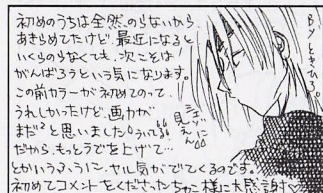 初めのうちは全然のらないから
あきらめてたけど、最近になると
いくらのらなくても、次こそは!
がんばろうという気になります。
この前カラーが初めてのって、
うれしかったけど、画力が
まだ?と思いました
だから、もっとうでを上げて…
とかいうふうに、ヤル気がでてくるのです。
初めてコメントをくださったちゃこ様に大感謝
BY ときひろ。
見えん